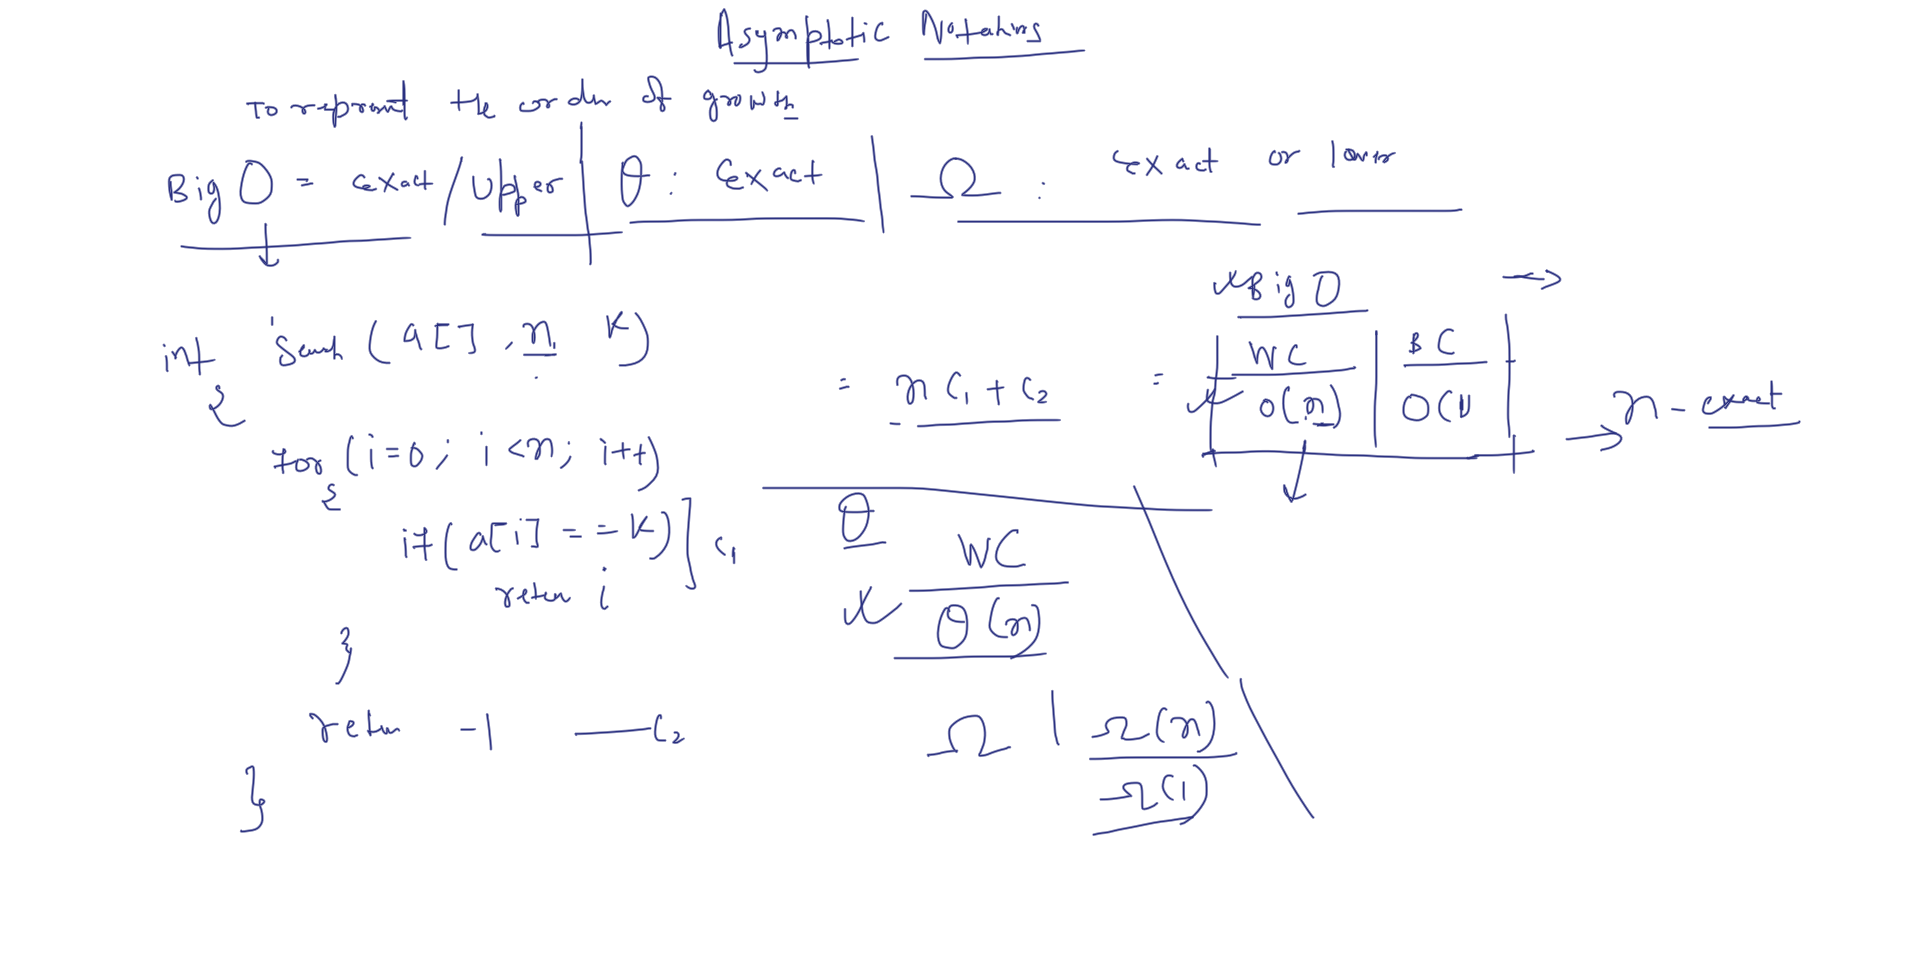 Asymptotic Notations
To represent the order of growth
Big O = exact / Upper | θ : Exact | Ω : exact or lower
int Search ( a[] , n, K)
{
for (i=0; i<n; i++)
{
if( a[i] == K) ] c1
return i
}
return -1 — C2
}
= n C1 + C2 =
Big O →
WC | BC
O(n) | O(1
→ n - exact
θ WC
θ (n)
Ω | Ω(n)
Ω(1)